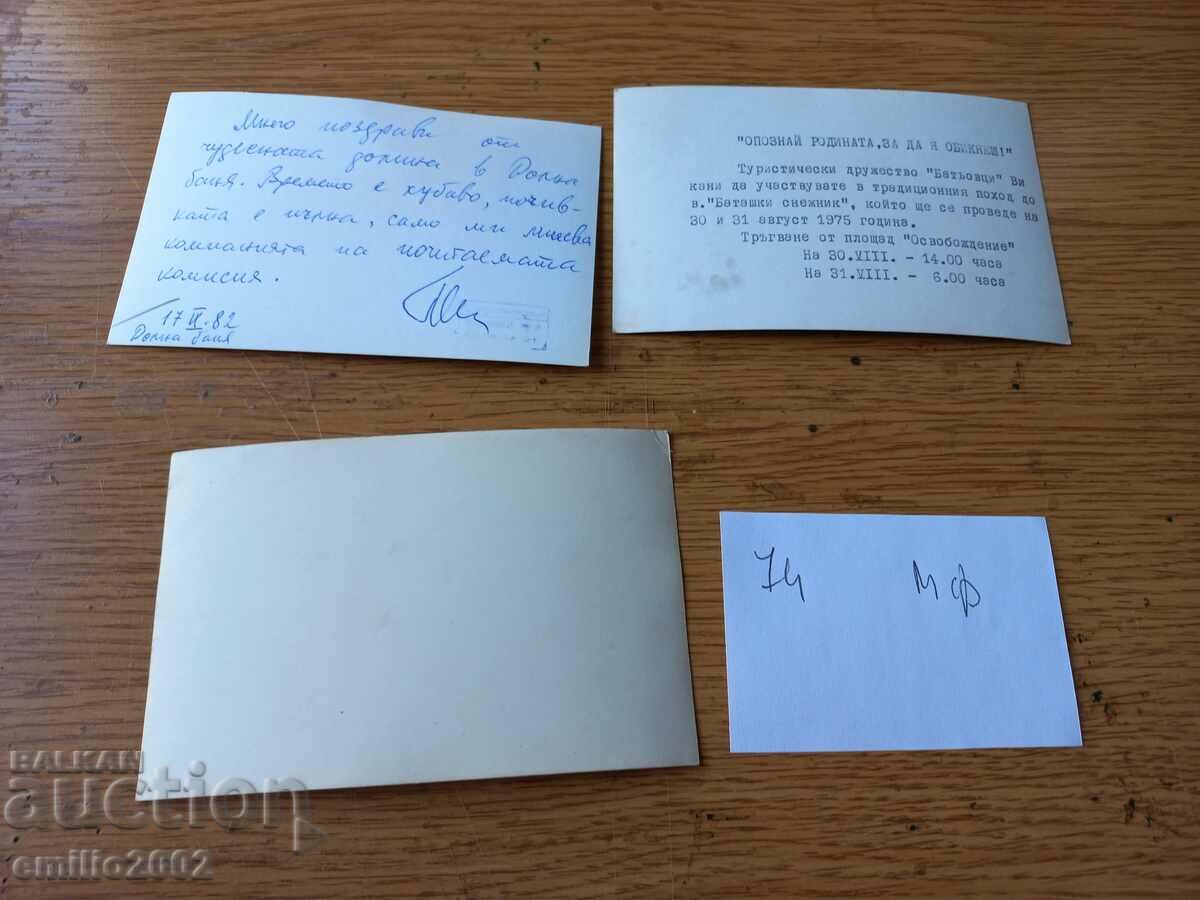 Много поздрави от
чудесната долина в Долна
баня. Времето е хубаво, почив-
ката е пълна, само ми липсва
компанията на почитаемата
комисия.
17 IX.82
Долна баня
"ОПОЗНАЙ РОДИНАТА,ЗА ДА Я ОБИКНЕШ!"
Туристически дружество "Батьовци" Ви
кани да участвувате в традиционния поход до
в."Баташки снежник", който ще се проведе на
30 и 31 август 1975 година.
Тръгване от площад "Освобождение"
На 30.VIII. - 14.00 часа
На 31.VIII. - 6.00 часа
74 МФ
BALKAN
auction
emilio2002